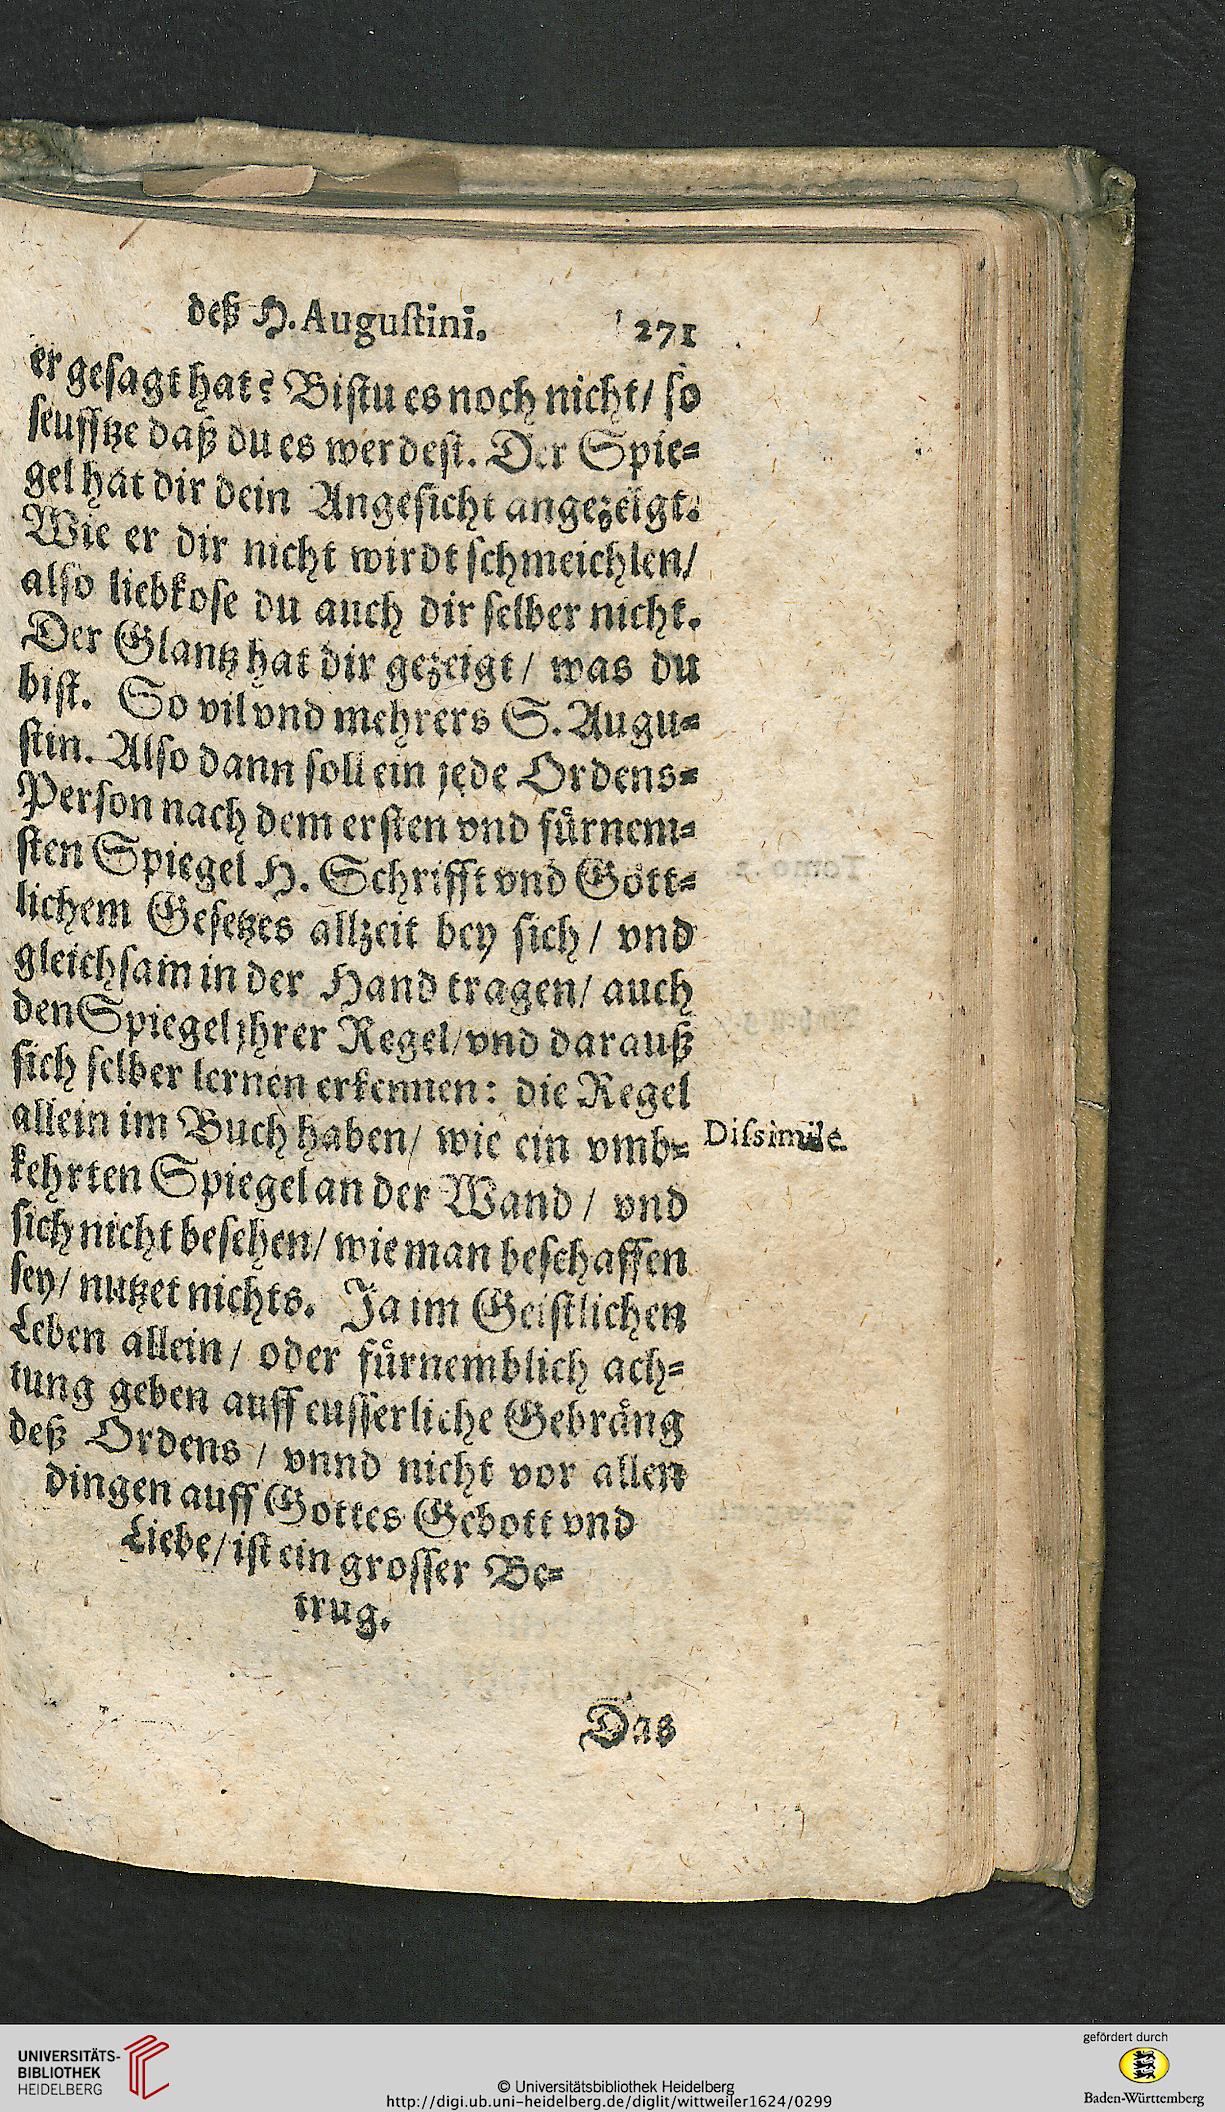 deß H. Augustini. 271
er gesagt hat? Bistu es noch nicht/ so
seufftze daß du es werdest. Der Spie=
gel hat dir dein Angesicht angezeigt.
Wie er dir nicht wirdt schmeichlen/
also liebkose du auch dir selber nicht.
Der Glantz hat dir gezeigt/ was du
bist. So vil vnd mehrers S. Augu=
stin. Also dann soll ein jede Ordens=
Person nach dem ersten vnd fürnem=
sten Spiegel H. Schrifft vnd Gött=
lichem Gesetzes allzeit bey sich/ vnd
gleichsam in der Hand tragen/ auch
den Spiegel jhrer Regel/ vnd darauß
sich selber lernen erkennen: die Regel
allein im Buch haben/ wie ein vmb=
kehrten Spiegel an der Wand/ vnd
sich nicht besehen/ wie man beschaffen
sey/ nutzet nichts. Ja im Geistlichen
Leben allein/ oder fürnemblich ach=
tung geben auff eusserliche Gebräng
deß Ordens/ vnnd nicht vor allen
dingen auff Gottes Gebott vnd
Liebe/ ist ein grosser Be=
trug.
Dissimile.
Das
UNIVERSITÄTS-
BIBLIOTHEK
HEIDELBERG
© Universitätsbibliothek Heidelberg
http://digi.ub.uni-heidelberg.de/diglit/wittweiler1624/0299
gefördert durch
Baden-Württemberg